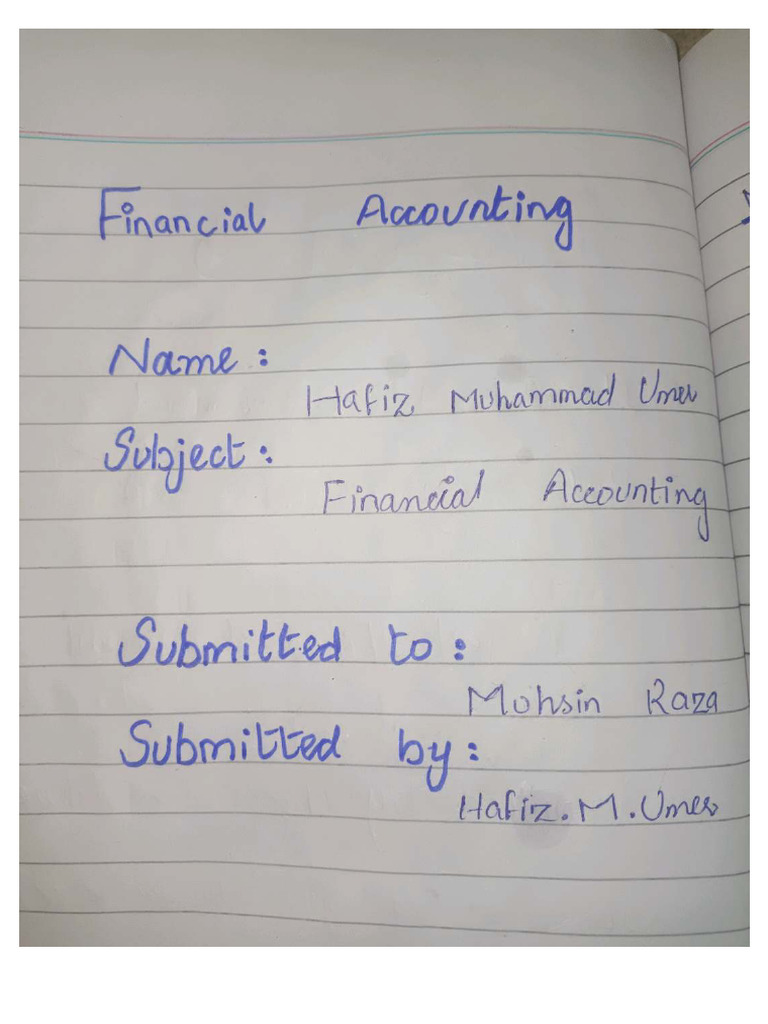 Financial Accounting
Name:
Hafiz Muhammad Umer
Subject:
Financial Accounting
Submitted to:
Mohsin Raza
Submitted by:
Hafiz.M.Umer